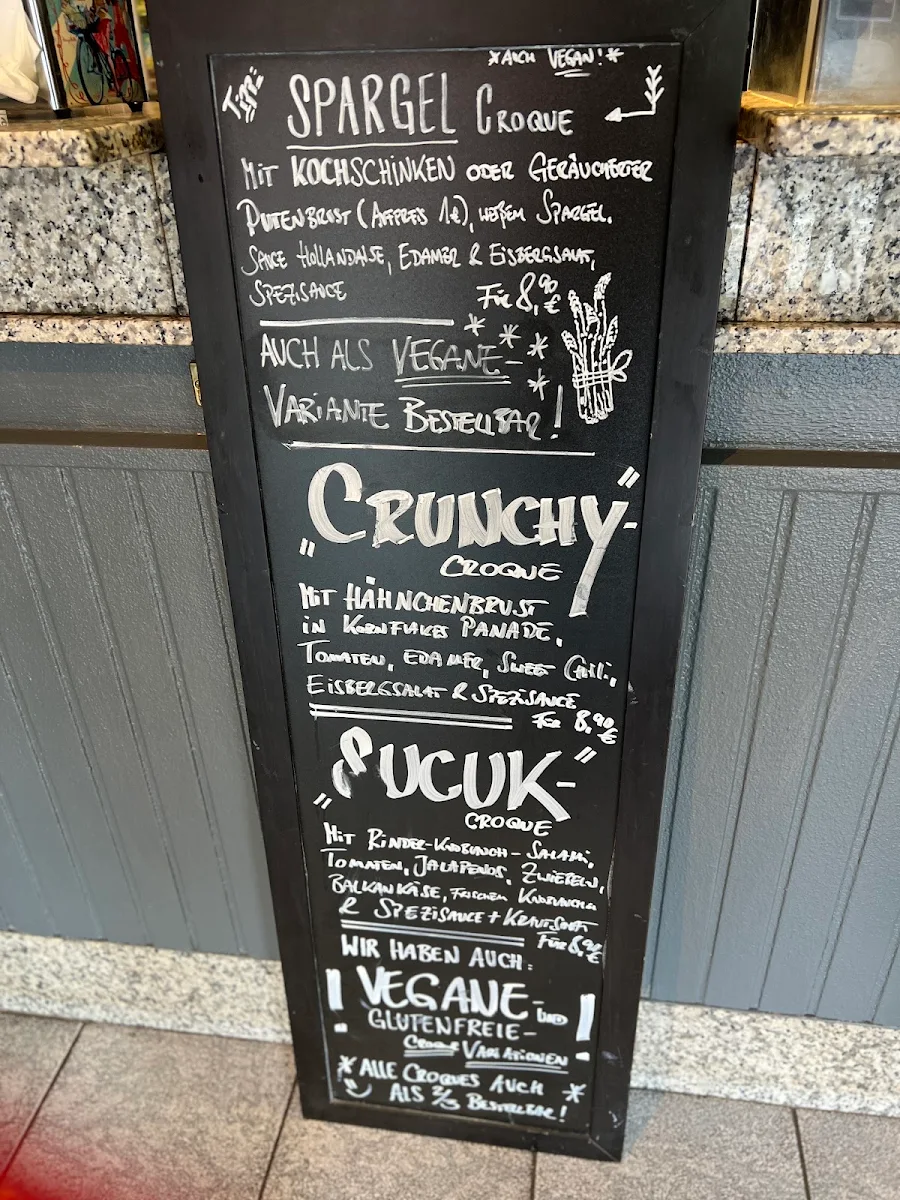 *AUCH VEGAN!*
TIPP
SPARGEL CROQUE
MIT KOCHSCHINKEN ODER GERÄUCHERTER
PUTENBRUST (AUFPREIS 1€), WEIßEM SPARGEL,
SAUCE HOLLANDAISE, EDAMER & EISBERGSALAT,
SPEZISAUCE FÜR 8,90 €
AUCH ALS VEGANE-
VARIANTE BESTELLBAR!
"CRUNCHY"-
CROQUE
MIT HÄHNCHENBRUST
IN KORNFLAKES PANADE,
TOMATEN, EDAMER, SWEET CHILI,
EISBERGSALAT & SPEZISAUCE
FÜR 8,90 €
"SUCUK"-
CROQUE
MIT RINDER-KNOBLAUCH-SALAMI,
TOMATEN, JALAPENOS, ZWIEBELN,
BALKANKÄSE, FRISCHEM KNOBLAUCH
& SPEZISAUCE + KRAUTSALAT
FÜR 8,90 €
WIR HABEN AUCH:
! VEGANE- UND !
GLUTENFREIE-
CROQUE VARIATIONEN
* ALLE CROQUES AUCH *
ALS 2/3 BESTELLBAR!